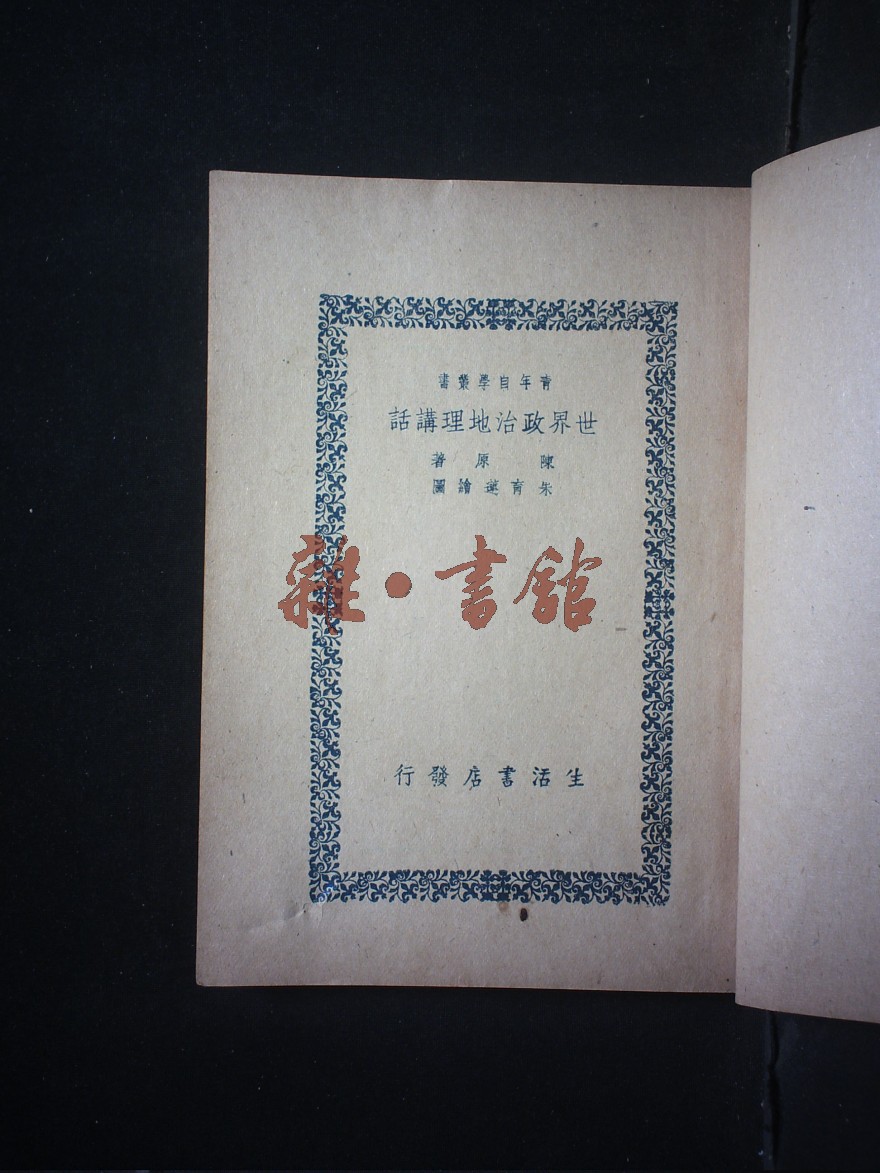 青年自學叢書
世界政治地理講話
陳原著
朱育蓮繪圖
雜·書館
生活書店發行